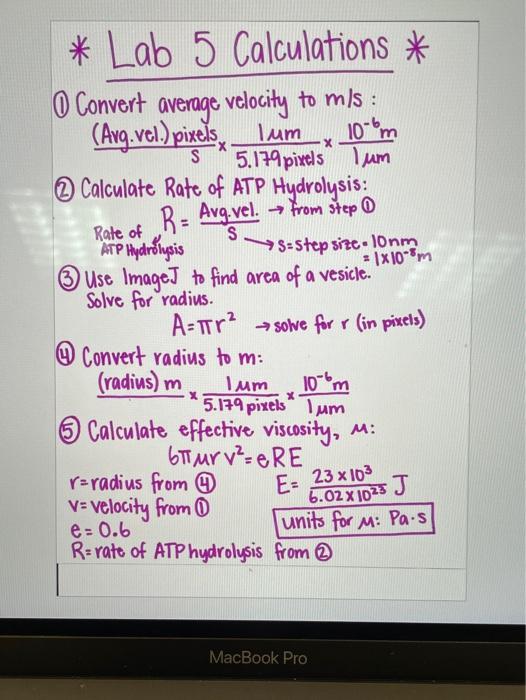 * Lab 5 Calculations *
① Convert average velocity to m/s :
(Avg. vel.) pixels/s x 1 um/5.179 pixels x 10⁻⁶ m/1 um
② Calculate Rate of ATP Hydrolysis:
Rate of ATP Hydrolysis R = Avg. vel./s → from step ①
→ s = step size = 10nm
= 1x10⁻⁸m
③ Use ImageJ to find area of a vesicle.
Solve for radius.
A = πr² → solve for r (in pixels)
④ Convert radius to m:
(radius) m x 1 um/5.179 pixels x 10⁻⁶ m/1 um
⑤ Calculate effective viscosity, μ:
6πμrv² = eRE
r = radius from ④ E = 23 x 10³/6.02 x 10²³ J
v = velocity from ①
e = 0.6 units for μ: Pa·s
R = rate of ATP hydrolysis from ②
MacBook Pro